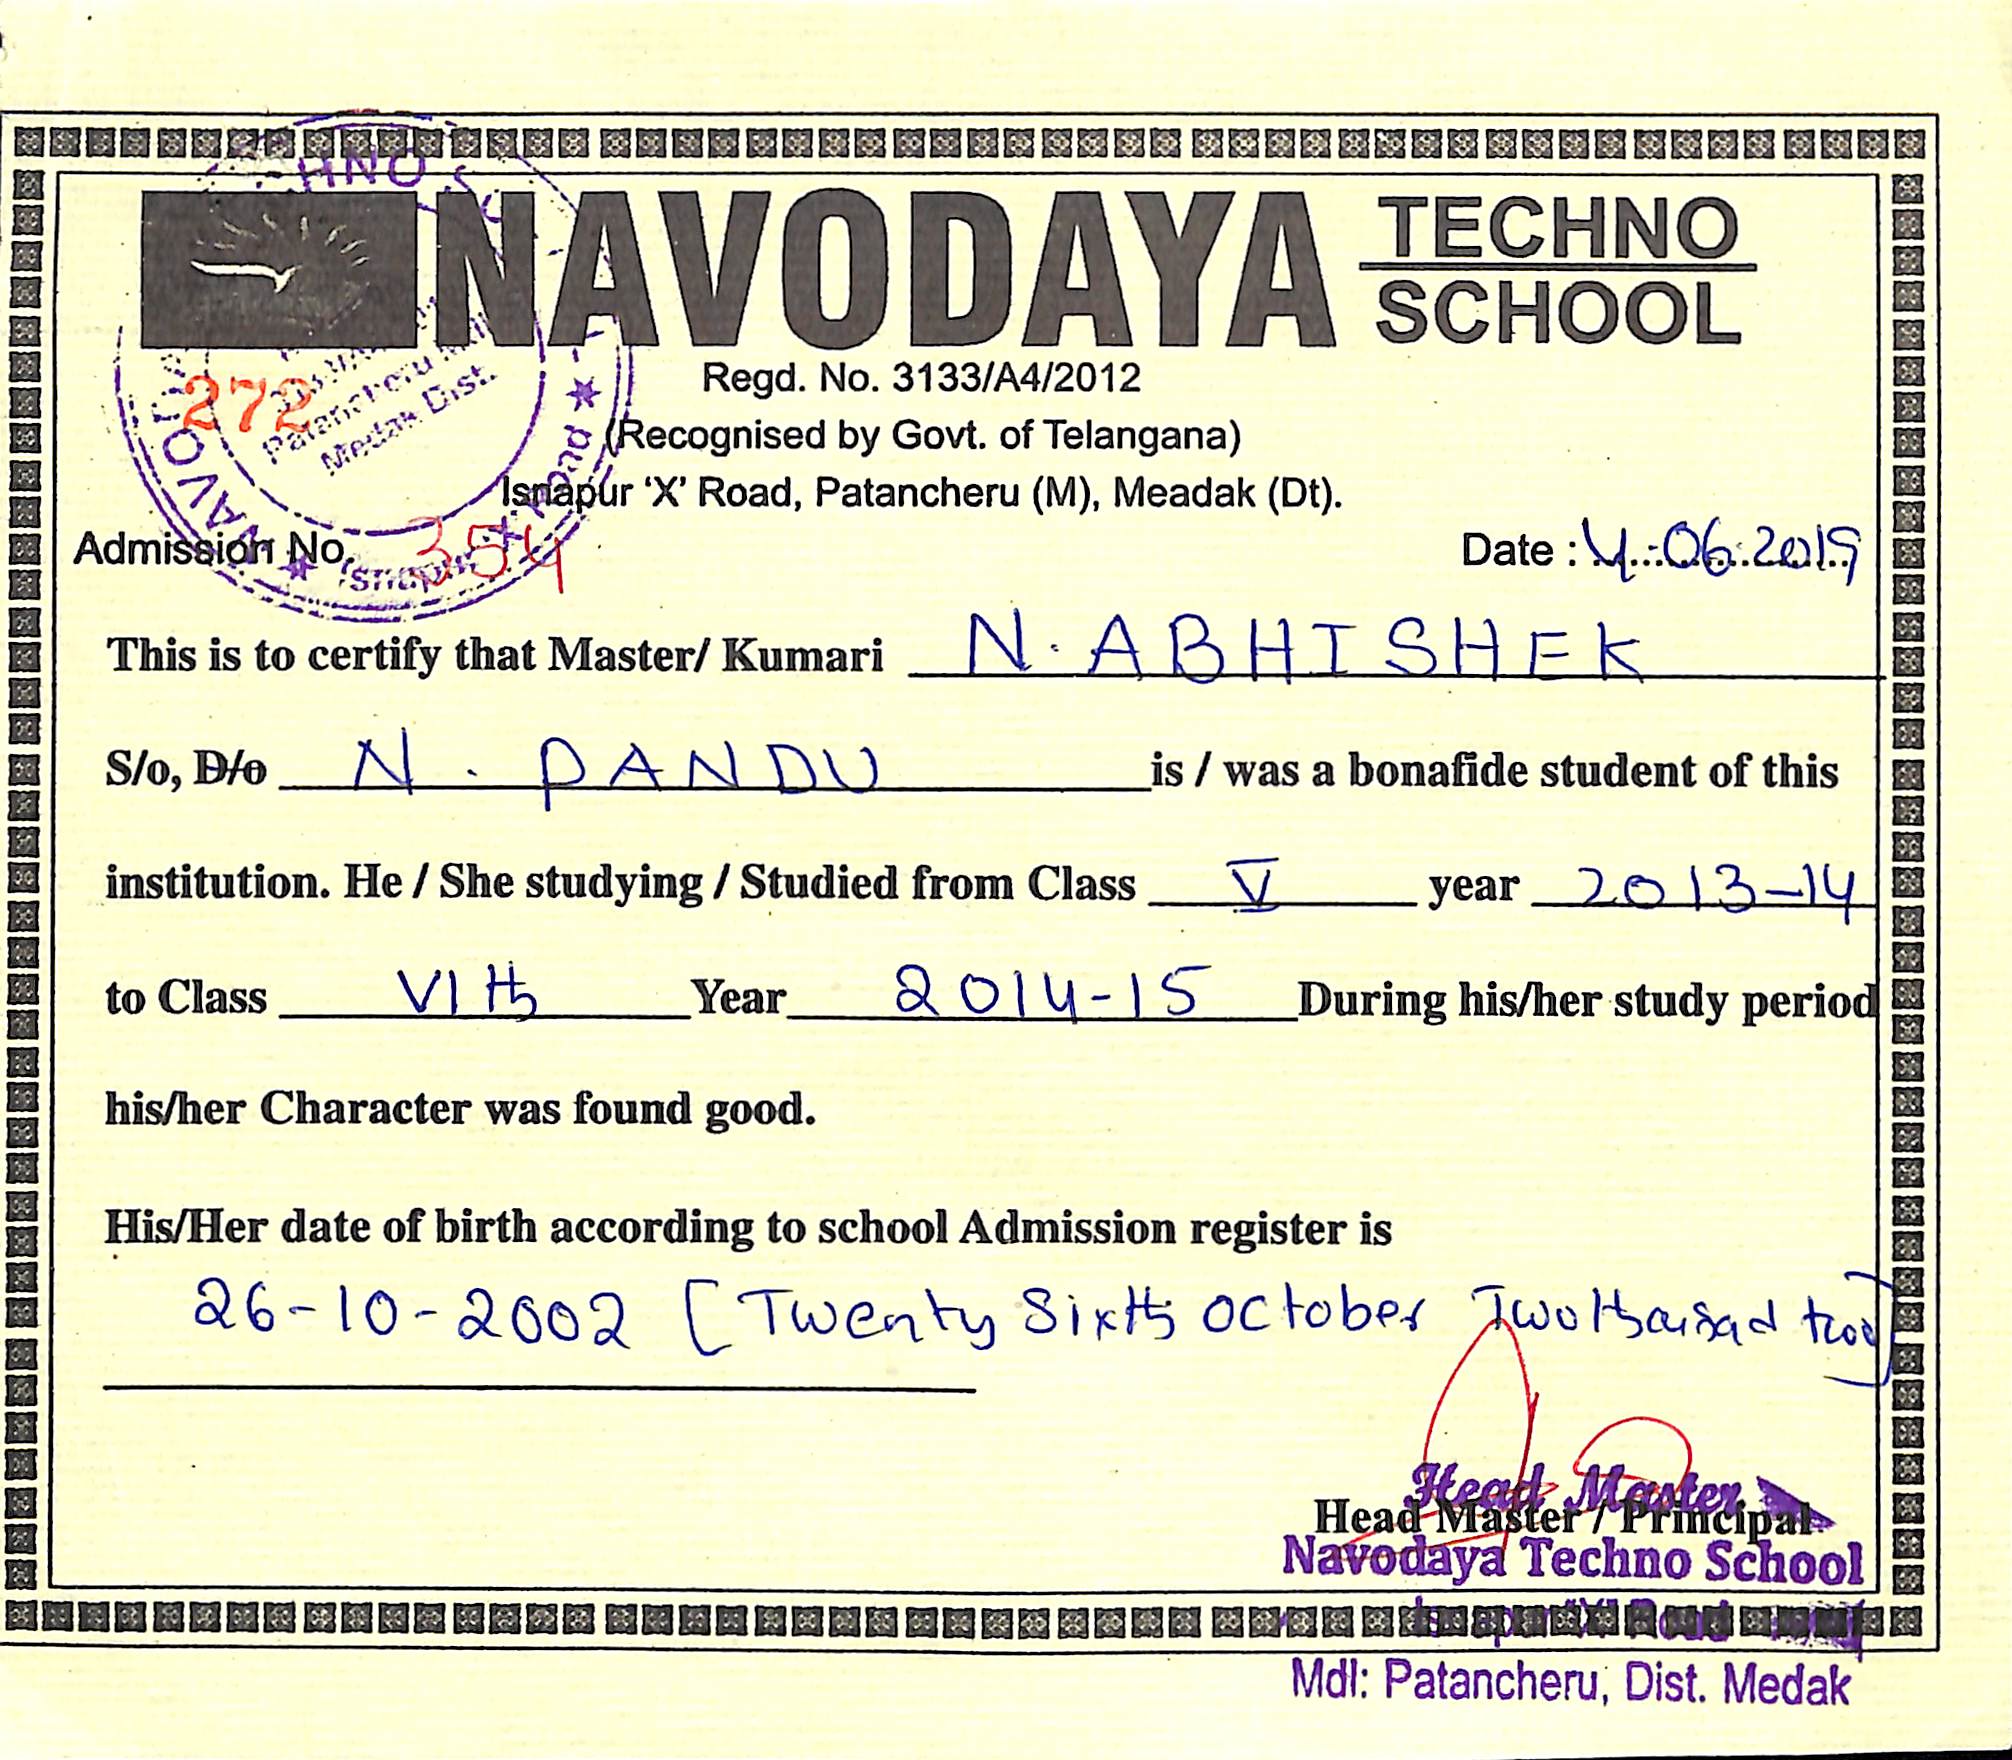 NAVODAYA TECHNO SCHOOL
Regd. No. 3133/A4/2012
272
Patancheru
Medak Dist.
(Recognised by Govt. of Telangana)
Isnapur 'X' Road, Patancheru (M), Meadak (Dt).
Admission No. 354 Date : 4.06.2019
This is to certify that Master/ Kumari N. ABHISHEK
S/o, D/o N. PANDU is / was a bonafide student of this
institution. He / She studying / Studied from Class V year 2013-14
to Class VIth Year 2014-15 During his/her study period
his/her Character was found good.
His/Her date of birth according to school Admission register is
26-10-2002 [Twenty Sixth October Two thousad two]
Head Master
Head Master / Principal
Navodaya Techno School
Isnapur 'X' Road
Mdl: Patancheru, Dist. Medak